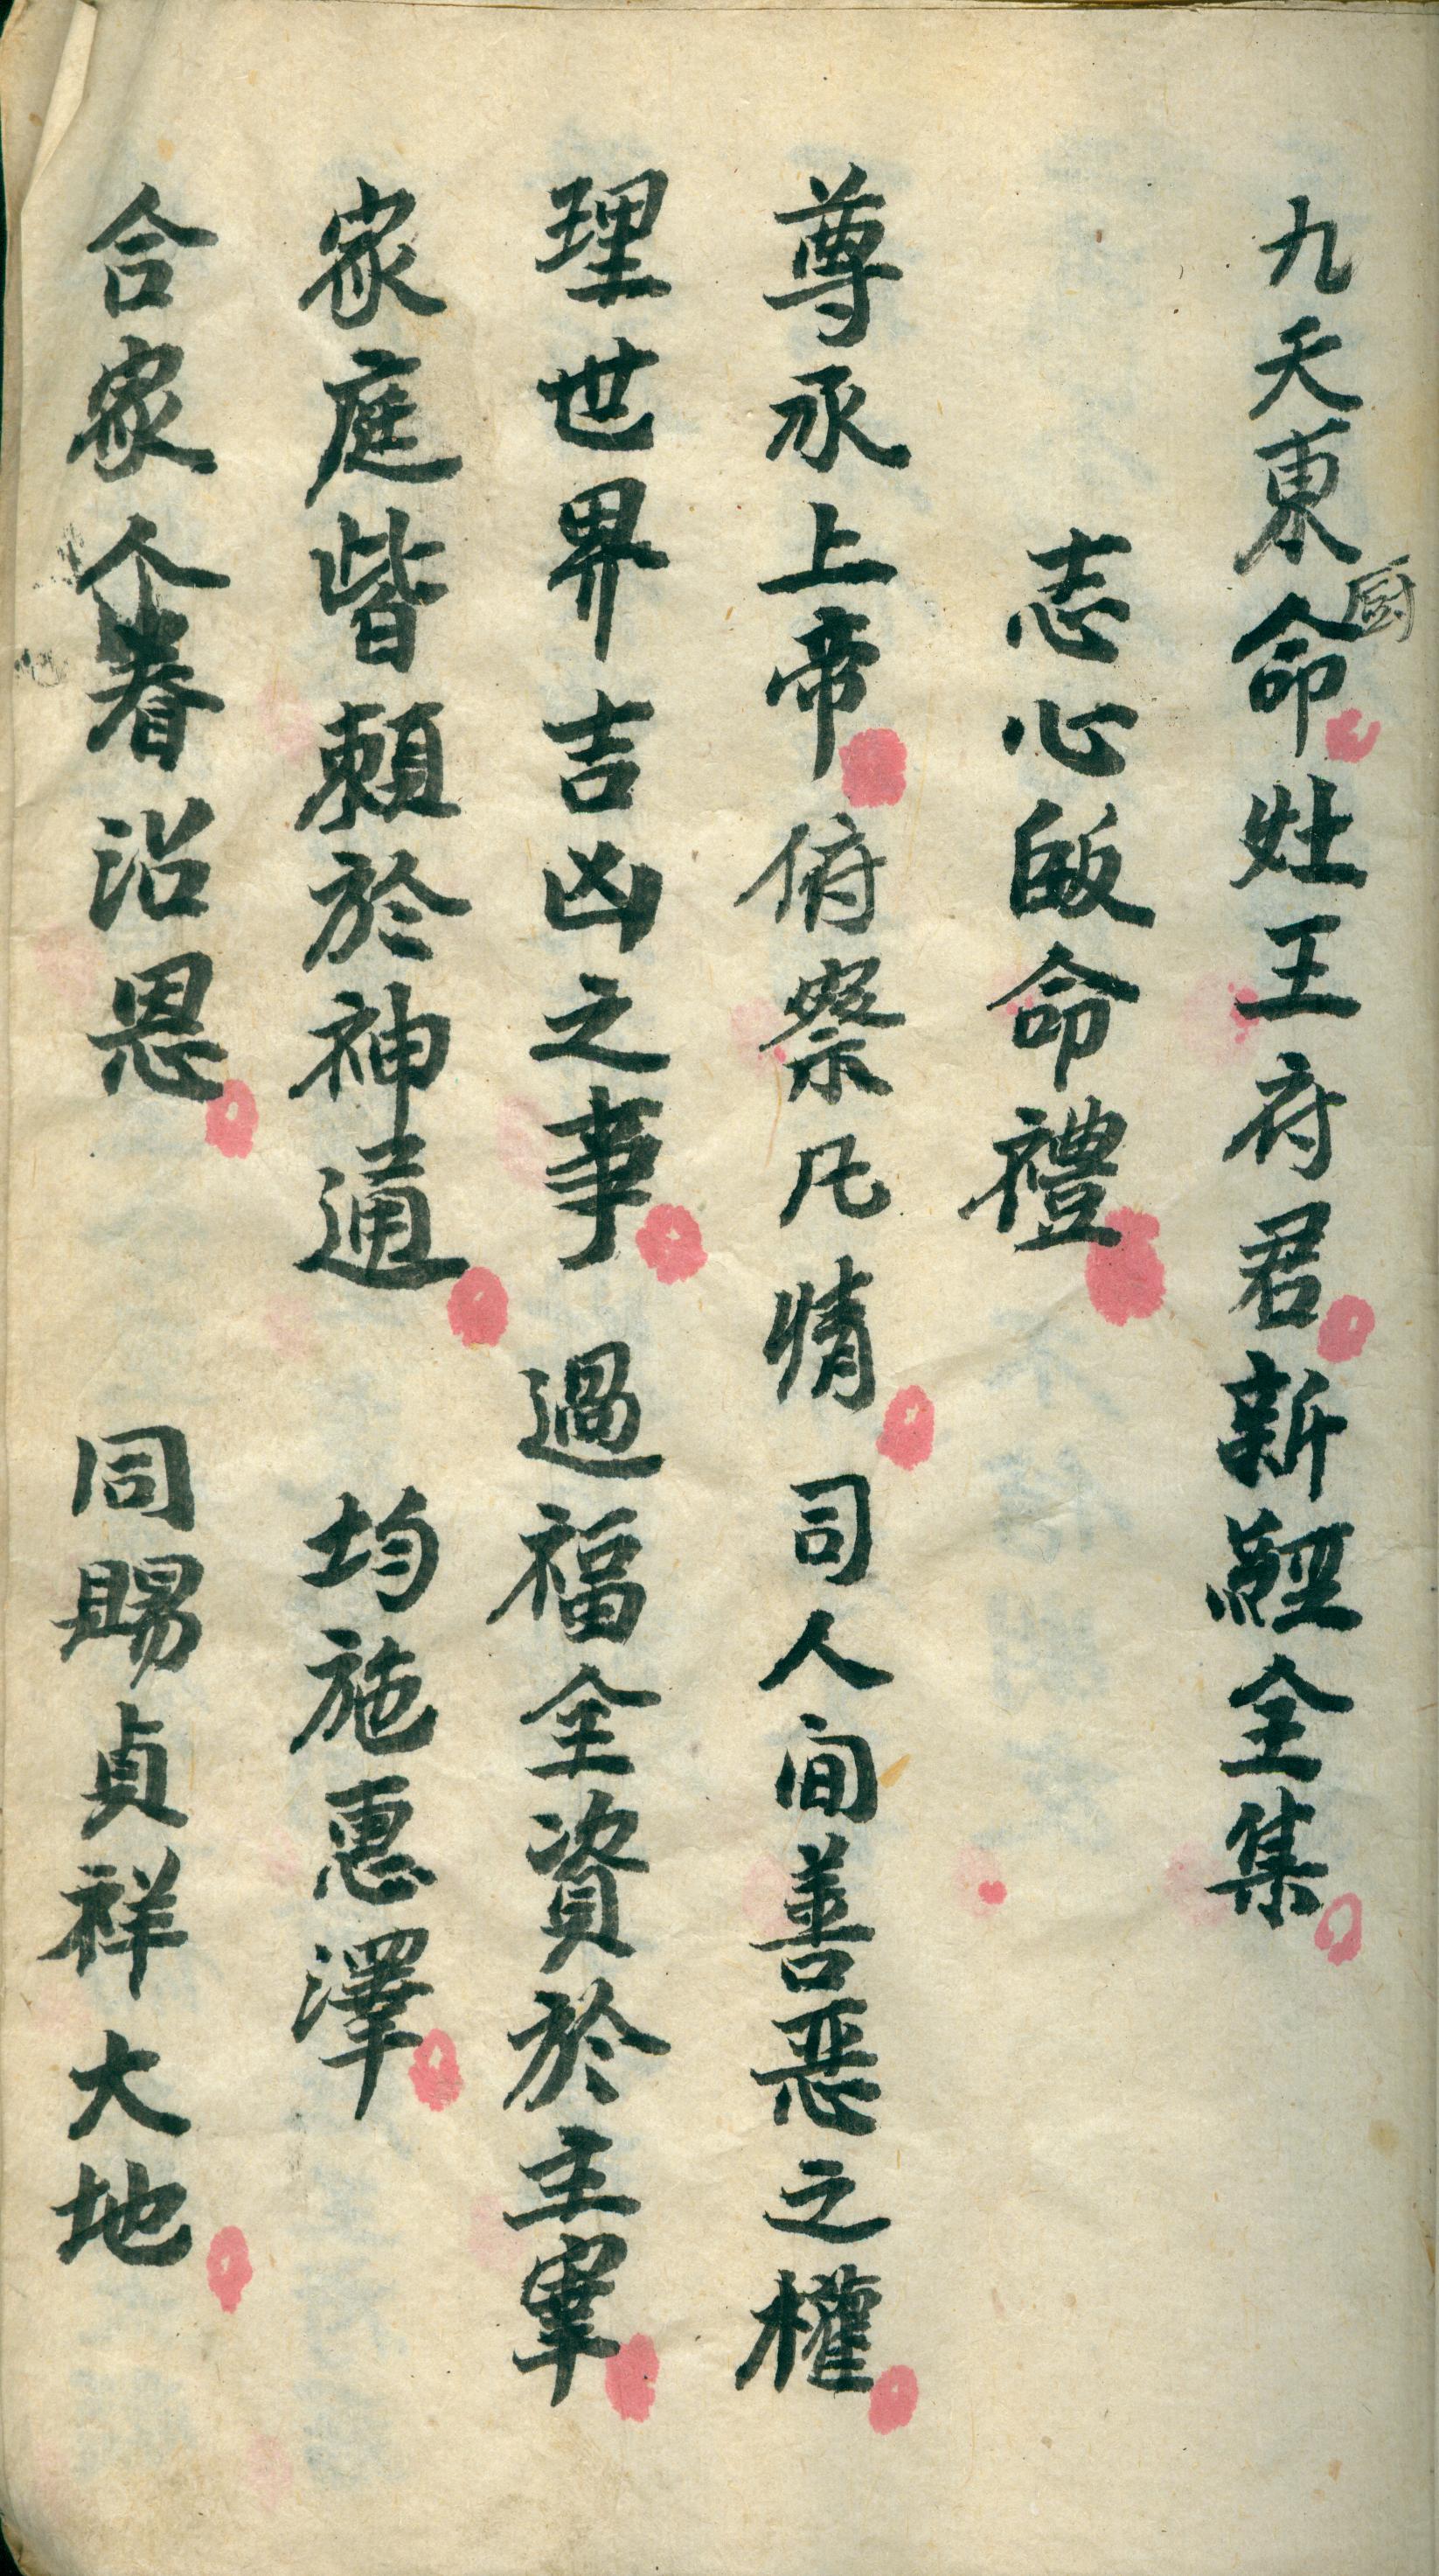 九天東厨命灶王府君新經全集
志心皈命禮
尊承上帝俯察凡情司人间善惡之權
理世界吉凶之事過福全資於主宰
家庭皆賴於神通均施惠澤
合家个眷沿恩同賜貞祥大地